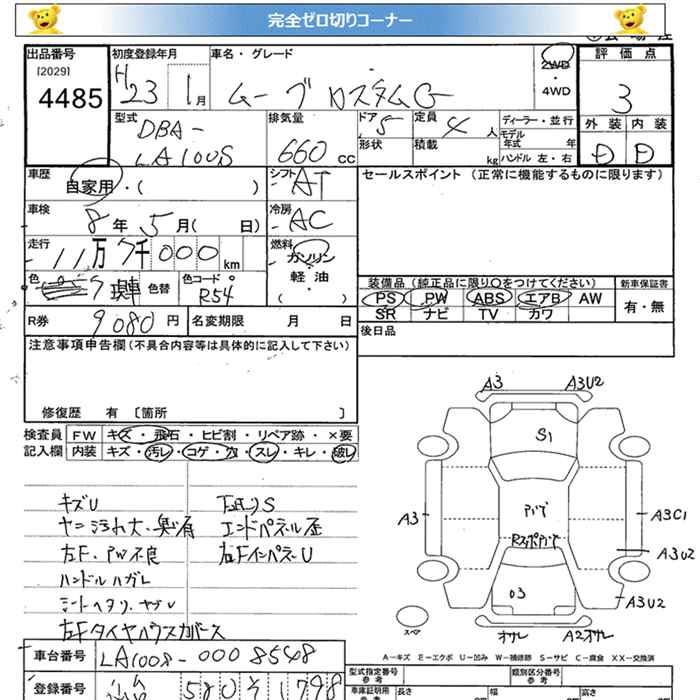 完全ゼロ切りコーナー
出品番号 初度登録年月 車名・グレード 2WD・4WD 評価点
[2029]
4485
H23 1月 ムーブカスタムG 3
型式 排気量 ドア 定員 ディーラー・並行 外装 内装
DBA-LA100S 660cc 5 4人 モデル年式 年 D D
形状 積載 kg ハンドル 左・右
車歴 シフト セールスポイント (正常に機能するものに限ります)
自家用・( ) AT
車検 冷房
8年5月( 日) AC
走行 燃料
11万7千000km ガソリン・軽油 ( )
色 現車 色替 色コード
R54
装備品(純正品に限り○をつけてください) 新車保証書
PS PW ABS エアB AW 有・無
SR ナビ TV カワ
R券 9080円 名変期限 月 日
後日品
注意事項申告欄(不具合内容等は具体的に記入して下さい)
修復歴 有 〔箇所 〕
検査員記入欄 FW キズ・飛石・ヒビ割・リペア跡・×要
内装 キズ・汚レ・コゲ・穴・スレ・キレ・破レ
キズU
ヤニ汚れ大・臭有
左F・PW不良
ハンドルハガレ
シートヘタリ・ヤブレ
左FタイヤハウスカバーS
下廻りS
エンドパネル歪
右FインパネU
A3 A3U2
S1
A3
A3C1
A3U2
A3U2
03
スペア
A2
A-キズ E-エクボ U-凹み W-補修跡 S-サビ C-腐食 XX-交換済
車台番号 LA100S-0008548
登録番号 580
型式指定番号 類別区分番号
参考 参考
車庫証明用 長さ 幅 高さ